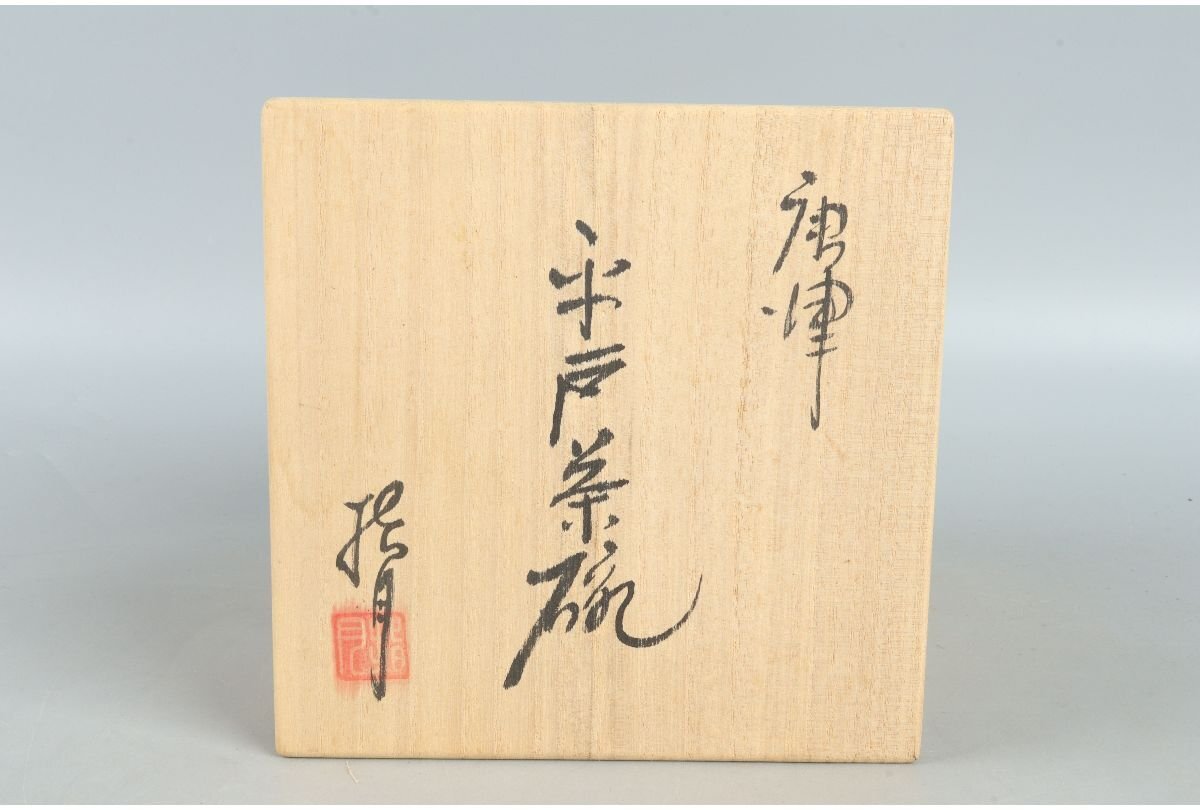 唐津
平戸茶碗
指月